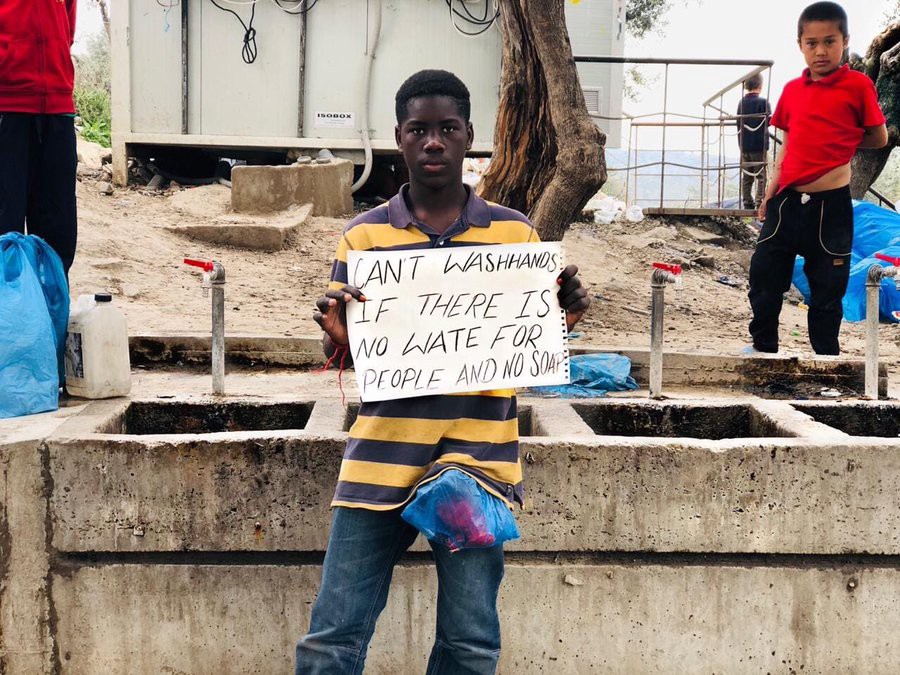 ISOBOX
CAN'T WASHHANDS
IF THERE IS
NO WATE FOR
PEOPLE AND NO SOAP